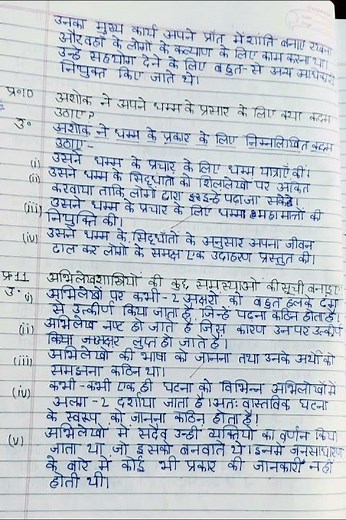 उनका मुख्य कार्य अपने प्रांत में शांति बनाए रखना
और वहाँ के लोगों के कल्याण के लिए काम करना था।
उन्हें सहयोग देने के लिए बहुत-से अन्य अधिकारी
नियुक्त किए जाते थे।
प्र०10 अशोक ने अपने धम्म के प्रसार के लिए क्या कदम
उठाए?
उ० अशोक ने धम्म के प्रकार के लिए निम्नलिखित कदम
उठाए-
(i) उसने धम्म के प्रचार के लिए धम्म यात्राएँ की।
(ii) उसने धम्म के सिद्धांतों को शिलालेखों पर अंकित
करवाया ताकि लोगों द्वारा इन्हें पढ़ा जा सके।
(iii) उसने धम्म के प्रचार के लिए धम्म महामात्रों की
नियुक्ति की।
(iv) उसने धम्म के सिद्धांतों के अनुसार अपना जीवन
ढाल कर लोगों के समक्ष एक उदाहरण प्रस्तुत की।
प्र11 अभिलेखशास्त्रियों की कुछ समस्याओं की सूची बनाइए।
उ० i) अभिलेखों पर कभी-2 अक्षरों को बहुत हलके ढंग
से उत्कीर्ण किया जाता है, जिन्हें पढ़ना कठिन होता है।
(ii) अभिलेख नष्ट हो जाते हैं जिस कारण उन पर उत्कीर्ण
किया अक्षर लुप्त हो जाते हैं।
(iii) अभिलेखों की भाषा को जानना तथा उनके अर्थों को
समझना कठिन था।
(iv) कभी-कभी एक ही घटना को विभिन्न अभिलेखों में
अलग-2 दर्शाया जाता है। अतः वास्तविक घटना
के स्वरूप को जानना कठिन होता है।
(v) अभिलेखों में सदैव उन्हीं व्यक्तियों का वर्णन किया
जाता था जो इसको बनवाते थे। इनमें जनसाधारण
के बारे में कोई भी प्रकार की जानकारी नहीं
होती थी।